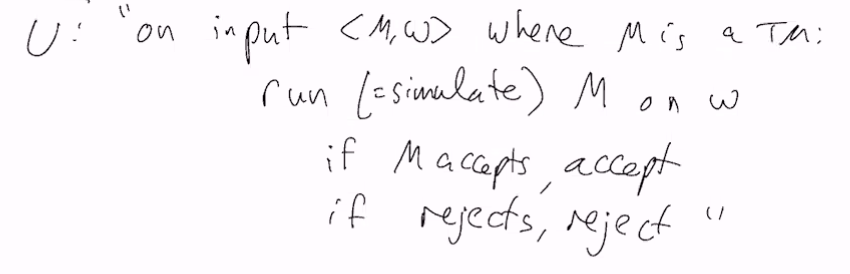 U: "on input <M,w> where M is a TM:
run (=simulate) M on w
if M accepts, accept
if rejects, reject "